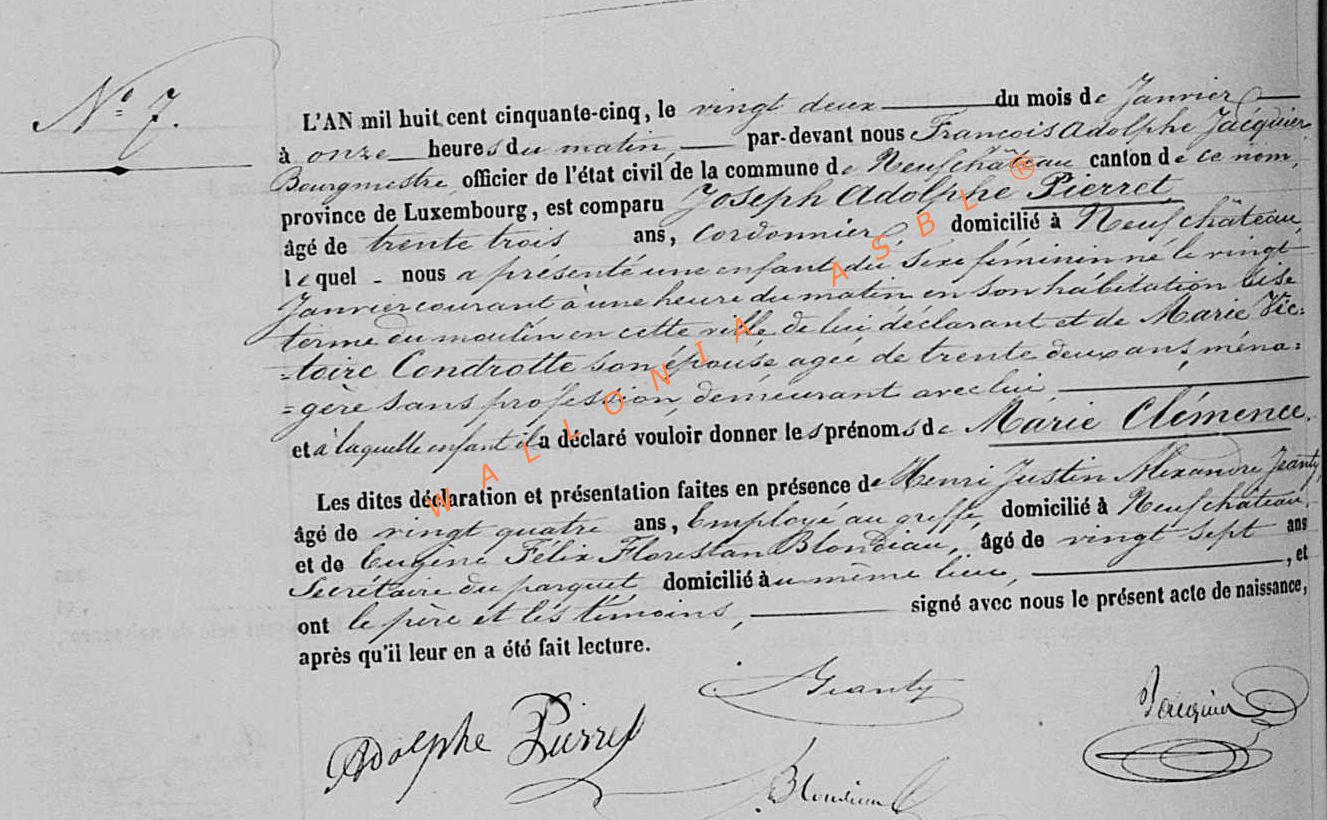 N° 7.
L'AN mil huit cent cinquante-cinq, le vingt deux du mois de Janvier
à onze heures du matin, par-devant nous François Adolphe Jacquier
Bourgmestre officier de l'état civil de la commune de Neufchâteau canton de ce nom,
province de Luxembourg, est comparu Joseph Adolphe Pierret,
âgé de trente trois ans, Cordonnier domicilié à Neufchâteau,
lequel nous a présenté une enfant du sexe féminin né le vingt
Janvier courant à une heure du matin en son habitation sise
terme du moulin en cette ville de lui déclarant et de Marie Vic:
=toire Condrotte son épouse agée de trente deux ans, ména=
=gère sans profession, demeurant avec lui
et à laquelle enfant il a déclaré vouloir donner les prénoms de Marie Clémence.
Les dites déclaration et présentation faites en présence de Henri Justin Alexandre Jeanty
âgé de vingt quatre ans, Employé au greffe, domicilié à Neufchâteau,
et de Eugène Félix Florestan Blondiau, âgé de vingt sept ans
Secrétaire du parquet domicilié au même lieu, , et
ont le père et les témoins, signé avec nous le présent acte de naissance,
après qu'il leur en a été fait lecture.
Jeanty
Jacquier
Adolphe Pierret
Blondiau
WALLONIA ASBL ®